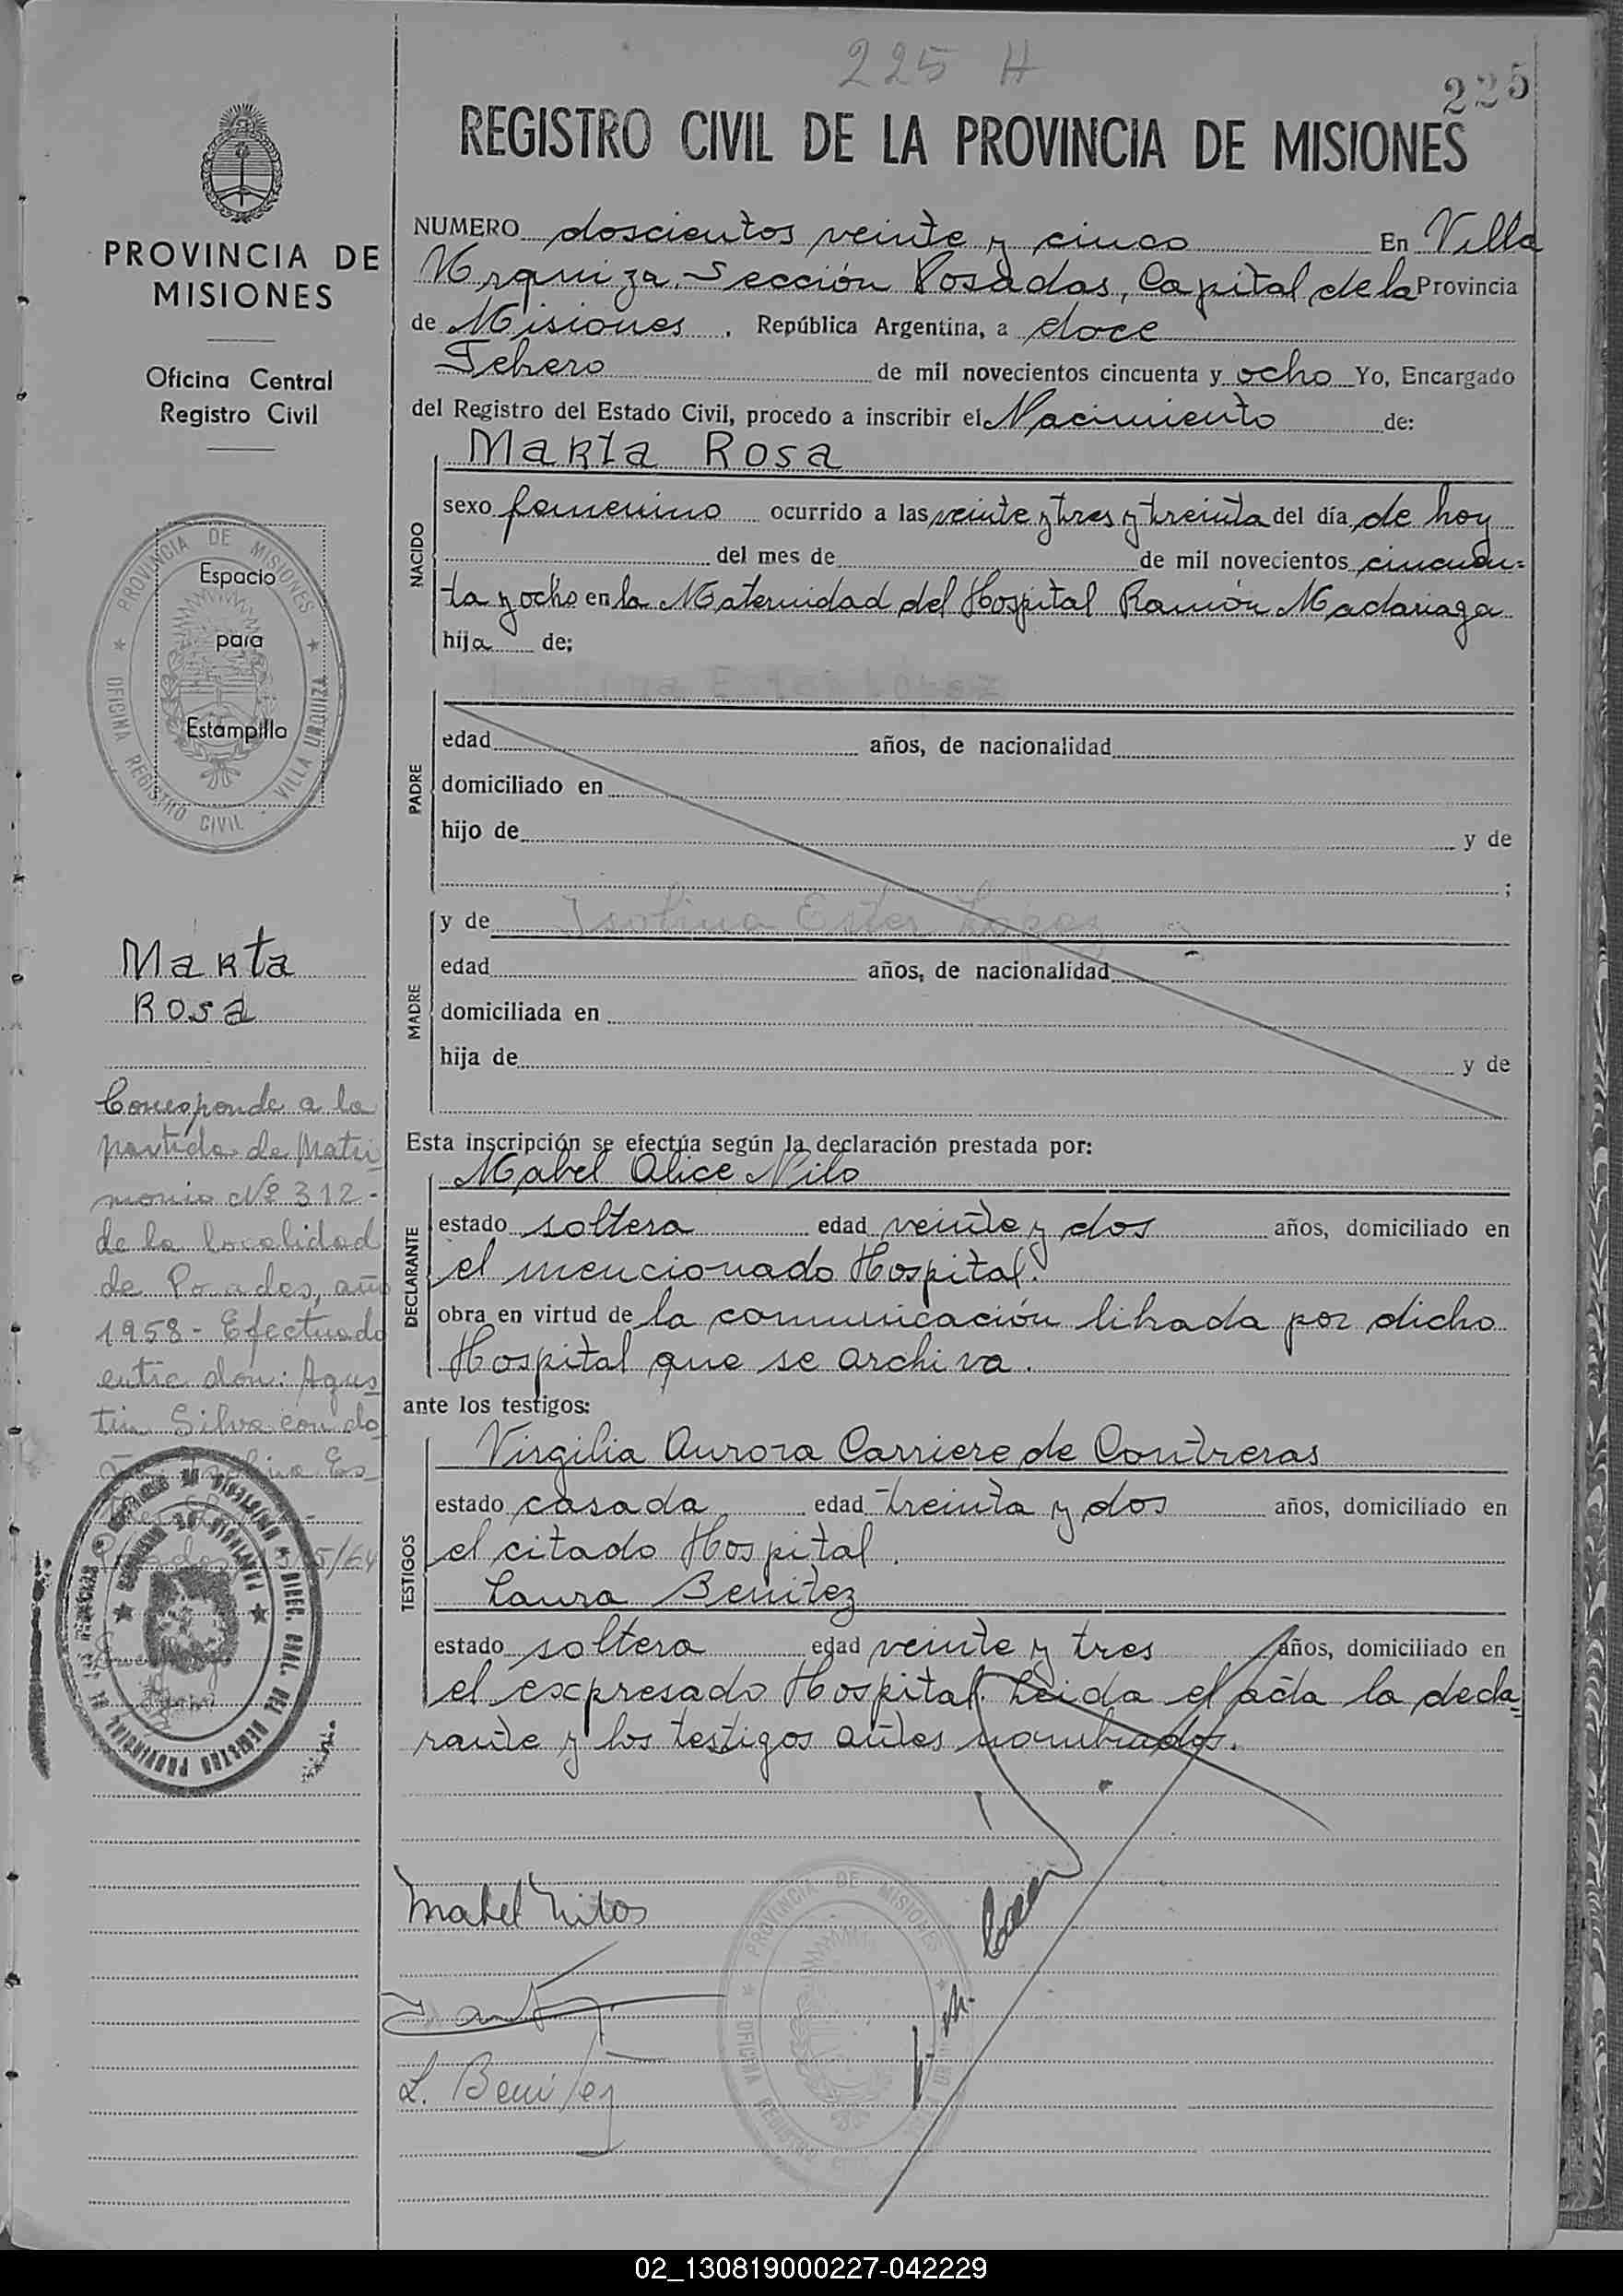 225 H
225
REGISTRO CIVIL DE LA PROVINCIA DE MISIONES
PROVINCIA DE
MISIONES
Oficina Central
Registro Civil
PROVINCIA DE MISIONES
OFICINA REGISTRO CIVIL - VILLA URQUIZA
Espacio
para
Estampilla
Marta
Rosa
Corresponde a la
partida de Matri
monio Nº 312-
de la localidad
de Posadas, año
1958 - Efectuado
entre don: Agus
tin Silva con do
NUMERO doscientos veinte y cinco En Villa
Urquiza. Sección Posadas, Capital de la Provincia
de Misiones, República Argentina, a doce
Febrero de mil novecientos cincuenta y ocho Yo, Encargado
del Registro del Estado Civil, procedo a inscribir el Nacimiento de:
Marta Rosa
NACIDO
sexo femenino ocurrido a las veinte y tres y treinta del día de hoy
del mes de de mil novecientos cincuen=
ta y ocho en la Maternidad del Hospital Ramón Madariaga
hija de;
PADRE
edad años, de nacionalidad
domiciliado en
hijo de y de
;
MADRE
y de Isolina Ester Lopez
edad años, de nacionalidad
domiciliada en
hija de y de
Esta inscripción se efectúa según la declaración prestada por:
DECLARANTE
Mabel Alice Nilo
estado soltera edad veinte y dos años, domiciliado en
el mencionado Hospital.
obra en virtud de la comunicación librada por dicho
Hospital que se archiva.
ante los testigos:
TESTIGOS
Virgilia Aurora Carriere de Contreras
estado casada edad treinta y dos años, domiciliado en
el citado Hospital.
Laura Benitez
estado soltera edad veinte y tres años, domiciliado en
el expresado Hospital. Leida el acta la decla=
rante y los testigos antes nombrados.
Mabel Nilos
PROVINCIA DE MISIONES
OFICINA REGISTRO
L. Benitez
02_130819000227-042229